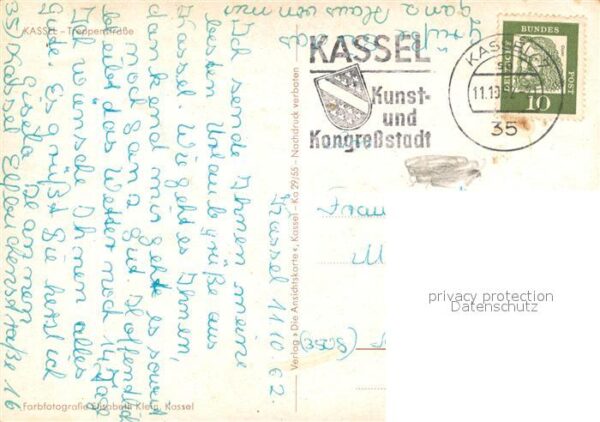 KASSEL – Treppenstraße
Kassel 11.10.62
Ich sende Ihnen meine
besten Urlaubsgrüße aus
Kassel. Wie geht es Ihnen,
dankend mir geht es soweit
noch ganz gut. Hoffendlich
bleibt das Wetter noch 14 Tage
Ich wünsche Ihnen alles
Gute. Es grüßt Sie herzlich
Gisela
35) Kassel Elfbuchenstraße 16
ganz
Haus von mir
Farbfotografie Elisabeth Klein, Kassel
Verlag »Die Ansichtskarte«, Kassel - Ka 29/65 - Nachdruck verboten
KASSEL
Kunst-
und
Kongreßstadt
KASSEL
11.10.
35
BUNDES
POST
10
Frau
privacy protection
Datenschutz